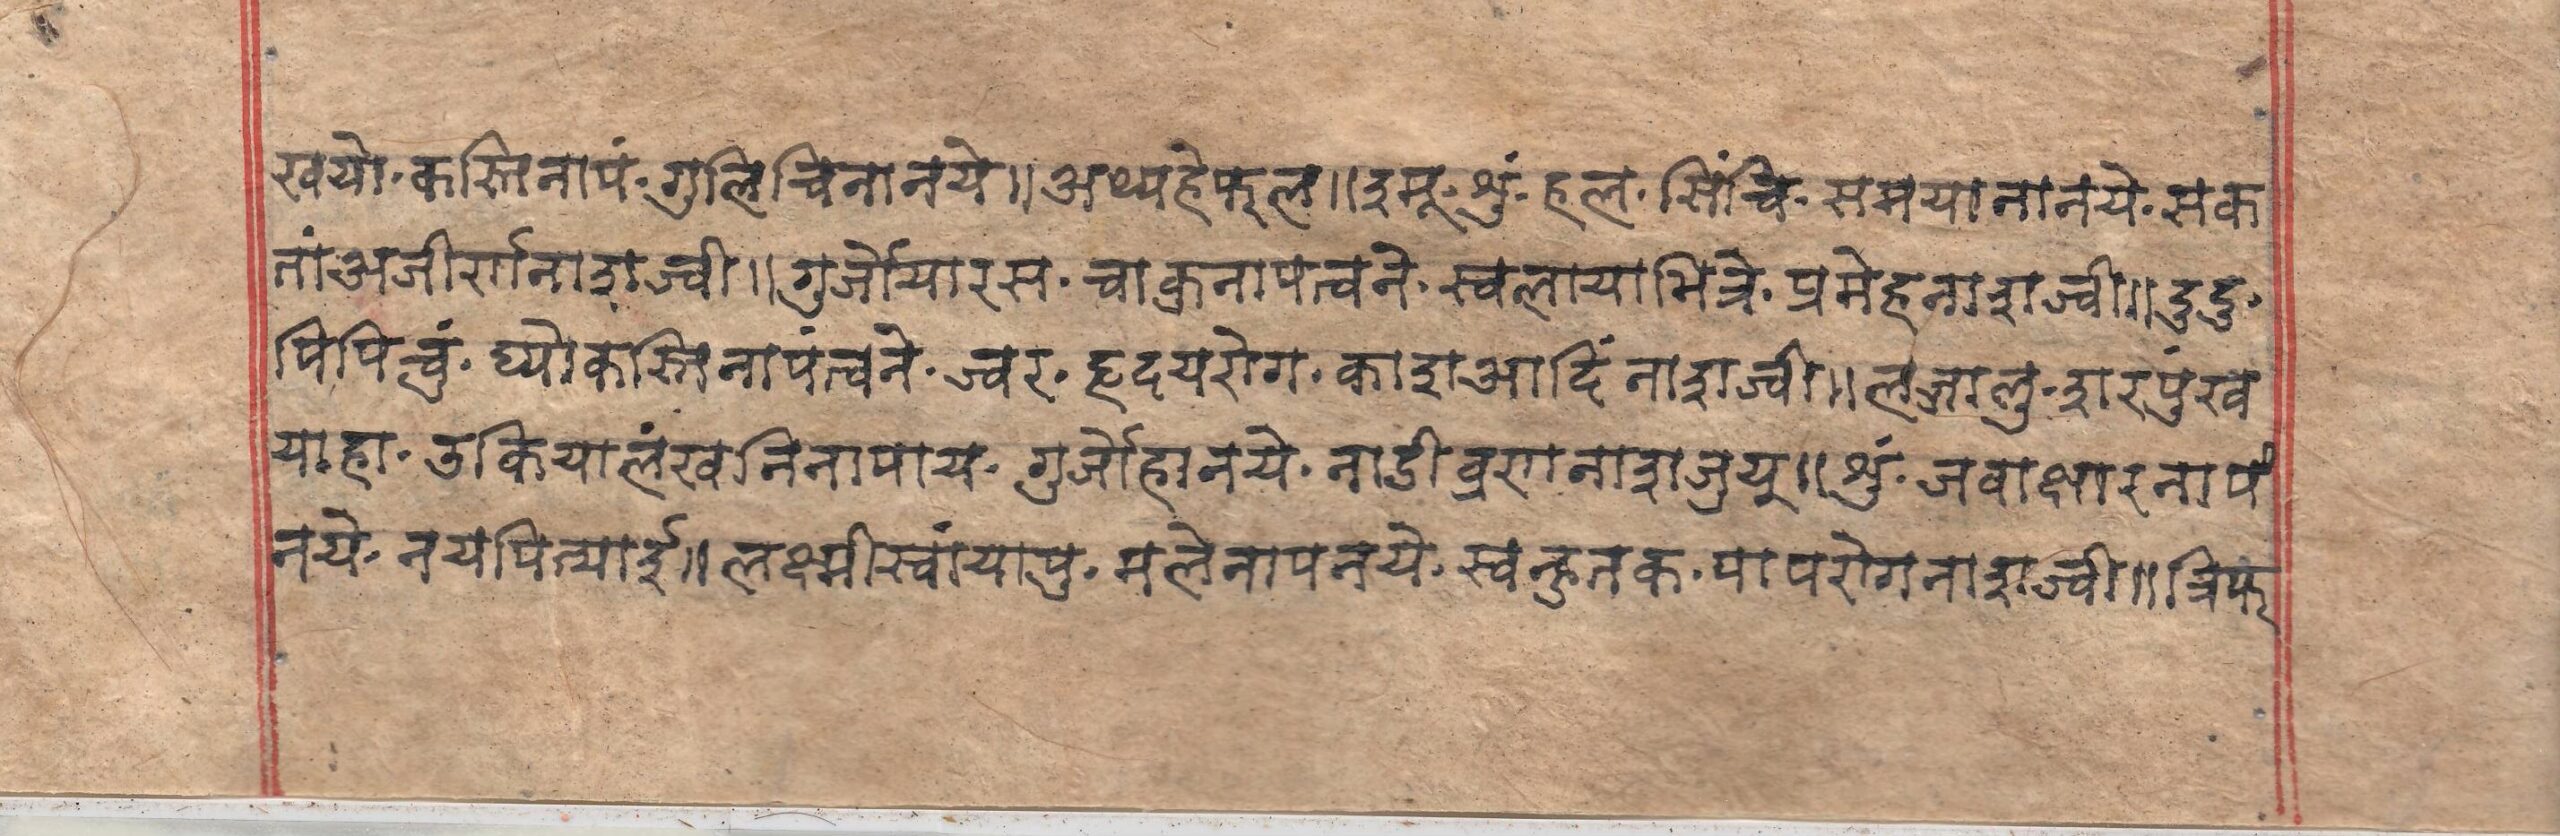 खयो॰कस्तिनापं॰गुलिचिनानये॥अथ्यहेफूल॥इमू॰शुं॰हल॰सिंचि॰समयानानये॰सक
तांअजीर्णनाशज्वी॥गुर्जोयारस॰चाक्रनापत्वने॰स्वलायाभित्रे॰प्रमेहनाशज्वी॥दुदु॰
पिपिचुं॰घ्योकस्तिनापंत्वने॰ज्वर॰हृदयरोग॰काशआदिंनाशज्वी॥लज्जालु॰शरपुंख
याहा॰उकियालंखनिनापाय॰गुर्जोहानये॰नाडीव्रणनाशजुयू॥शुं॰जवाक्षारनापं
नये॰नयपित्याई॥लक्ष्मीस्वांयापु॰मलेनापनये॰स्वन्हुतक॰पापरोगनाशज्वी॥त्रिफ